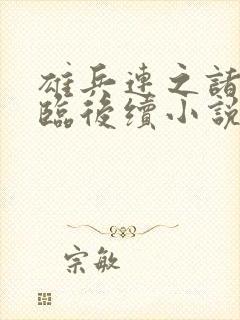 雄兵連之諸
臨後續小說
宗敏